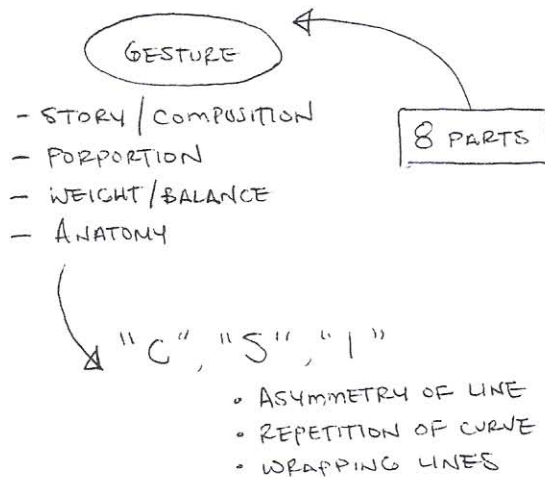 GESTURE
- STORY/COMPOSITION
8 PARTS
- PORPORTION
- WEIGHT/BALANCE
- ANATOMY
"C", "S", "I"
• ASYMMETRY OF LINE
• REPETITION OF CURVE
• WRAPPING LINES